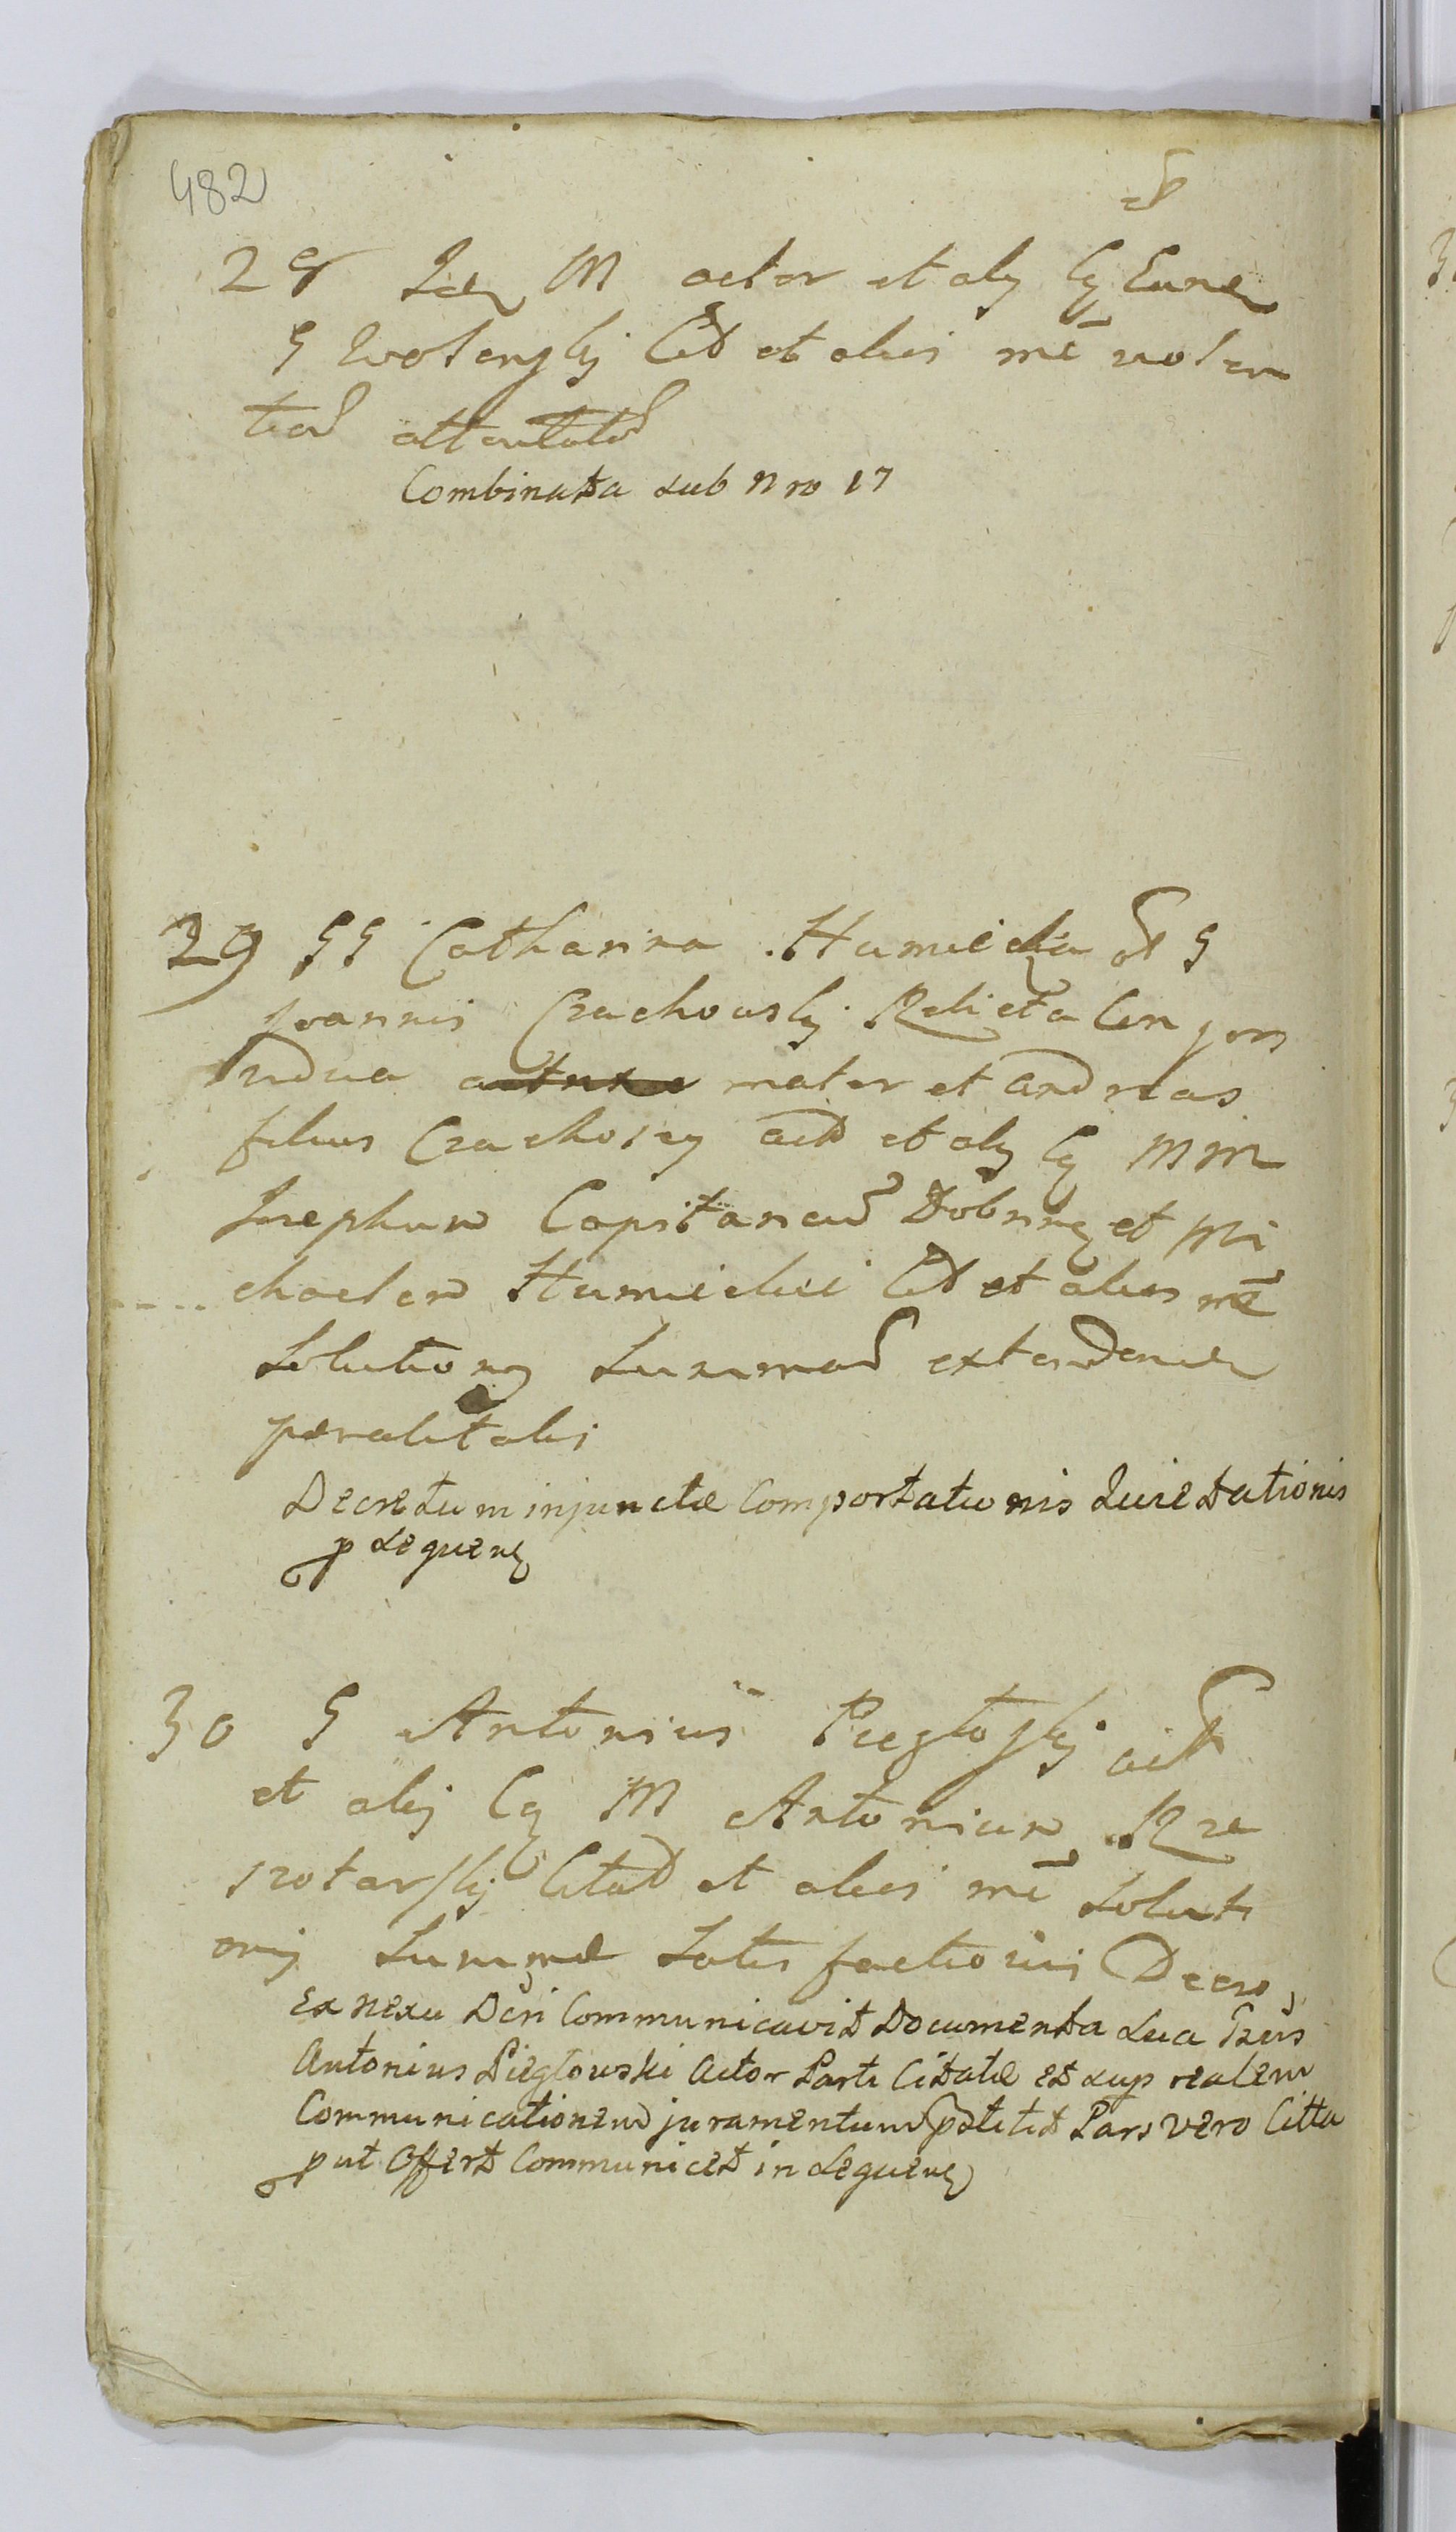 482
28 Idem M actor et alij Cq Eund
G Wolenskij Citt et alias me violen
tiar attentatar
Combinata sub Nro 17
29 GG Catharina Humiecka ol G
Joannis Czachowskj Relicta Conjors
vidua mater et Andreas
filius Czachoscy act et alij Cq MM
Josephum Capitaneum Dobrinen et Mi
chaelem Humieckie Citt et alias me
Solutionis Summar extendend
penalitatis
Decretum injunctæ Comportationis Quietationis
p Sequens
30 G Antonius Piegłoskj act
et alij Cq M Antonium Rze
szotarskij Citat et alias me Soluti
onis Summæ Satisfactionis Decro
Ex nexu Dcri Communicavit Documenta sua Gsus
Antonius Piegłowski Actor Parti Citatæ et sup realem
Communicationem juramentum pstitit Pars vero Citta
put Offert Communicet in Sequens